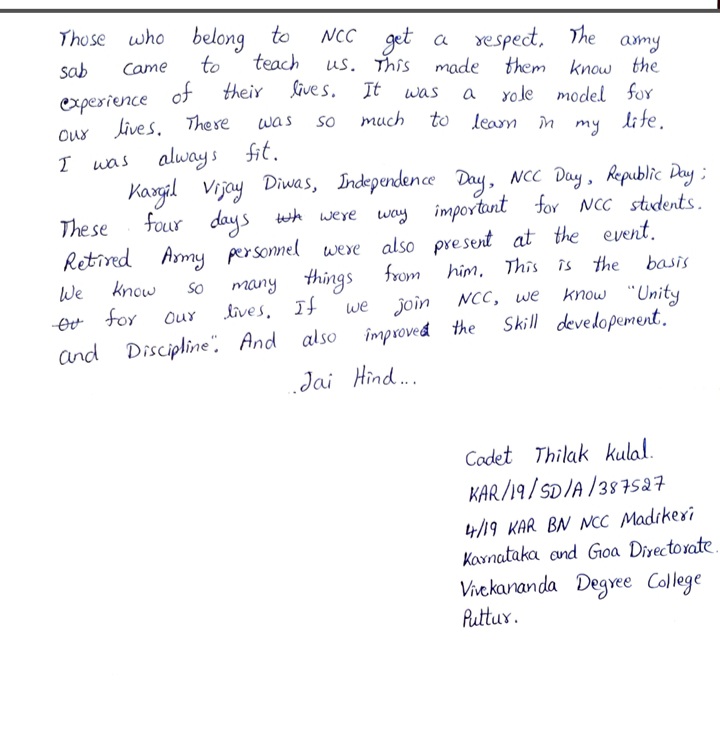 Those who belong to NCC get a respect. The army
sab came to teach us. This made them know the
experience of their lives. It was a role model for
our lives. There was so much to learn in my life.
I was always fit.
Kargil Vijay Diwas, Independence Day, NCC Day, Republic Day;
These four days were way important for NCC students.
Retired Army personnel were also present at the event.
We know so many things from him. This is the basis
for our lives. If we join NCC, we know "Unity
and Discipline". And also improved the Skill developement.
Jai Hind...
Cadet Thilak Kulal.
KAR/19/SD/A/387527
4/19 KAR BN NCC Madikeri
Karnataka and Goa Directorate.
Vivekananda Degree College
Puttur.